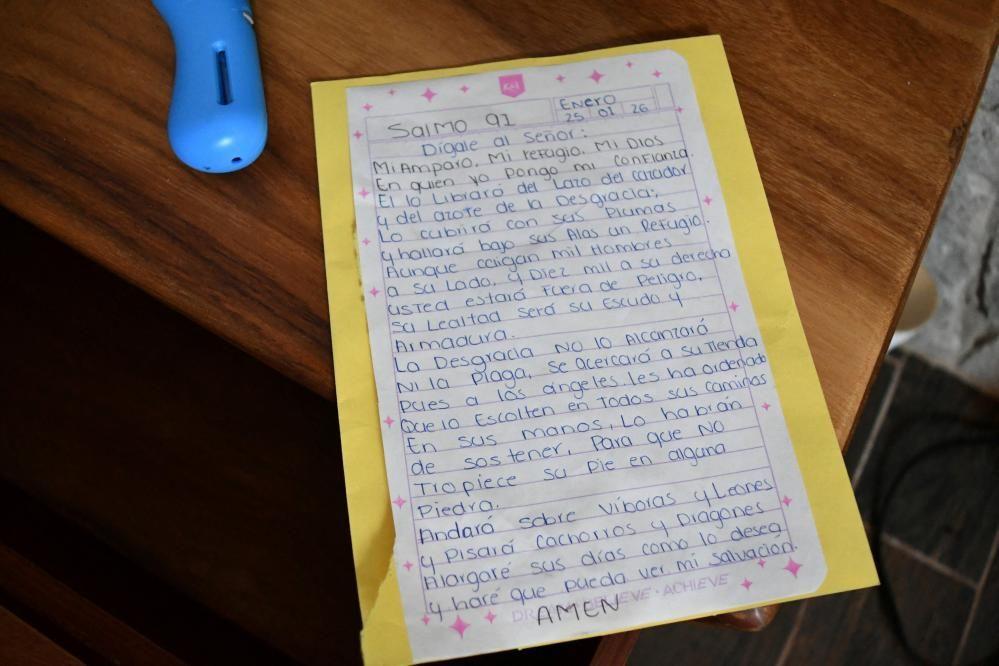 K&I
Salmo 91
Enero
25 01 26
Dígale al Señor:
Mi Amparo, Mi refugio, Mi DIOS
En quien yo pongo mi confianza.
El lo Librará del Lazo del cazador
y del azote de la Desgracia;
Lo cubrirá con sus Plumas
y hallará bajo sus Alas un Refugio.
Aunque caigan mil Hombres
a su Lado, y Diez mil a su derecha
usted estará Fuera de Peligro,
su Lealtad será su Escudo y
Armadura.
La Desgracia No lo Alcanzará
Ni la Plaga, se acercará a su Tienda
pues a los ángeles, les ha ordenado
Que lo Escolten en Todos sus caminos
En sus manos, Lo habrán
de sostener, Para que No
Tropiece su Pie en alguna
Piedra.
Andará sobre Víboras y Leones
y Pisará Cachorros y Dragones
Alargaré sus días como lo desea
y haré que pueda ver mi salvación.
ACHIEVE
AMEN